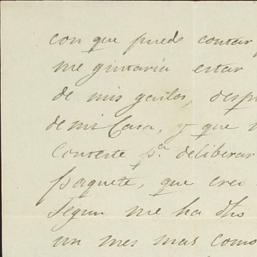 con que puedo contar
me gustaria estar
de mis gastos, despu
de mi Casa, y que
Conteste pª. deliberar
paquete, que creo
segun me ha dho
un mes mas como